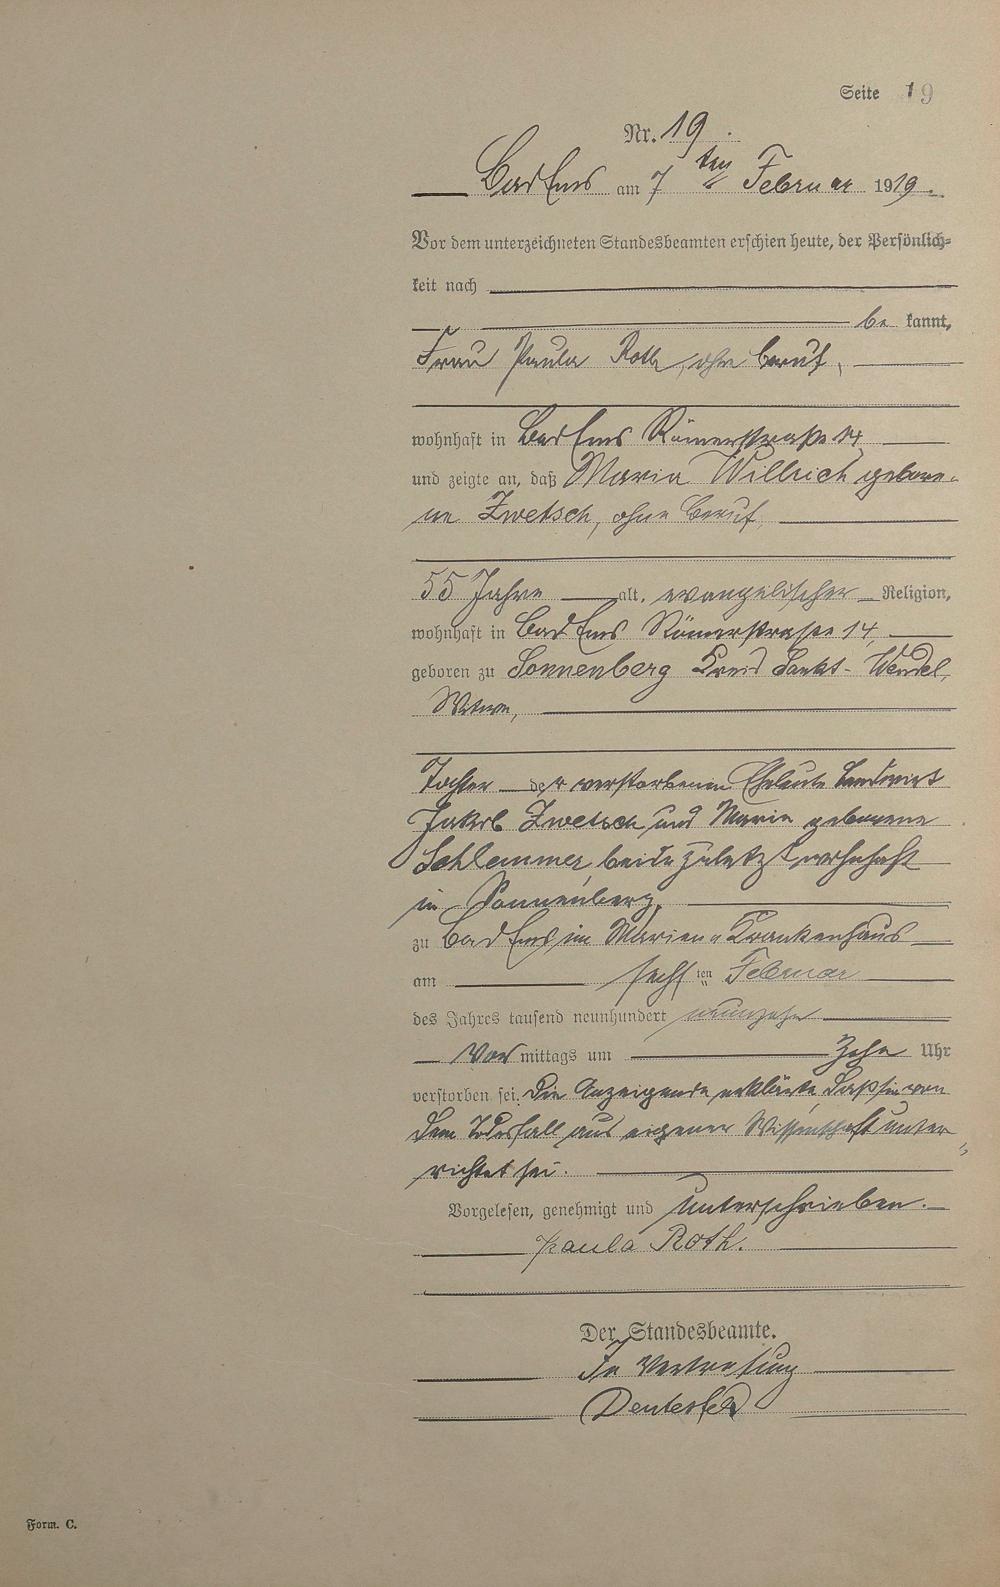 Seite 19
Nr. 19.
Bad Ems am 7ten Februar 1919.
Vor dem unterzeichneten Standesbeamten erschien heute, der Persönlich-
keit nach
be kannt,
Frau Paula Roth, ohne Beruf,
wohnhaft in Bad Ems Römerstraße 14
und zeigte an, daß Maria Willrich gebore-
ne Zwetsch, ohne Beruf,
55 Jahre alt, evangelischer Religion,
wohnhaft in Bad Ems Römerstraße 14,
geboren zu Sonnenberg Kreis Sankt-Wendel,
Witwe,
Tochter der verstorbenen Eheleute Landwirt
Jakob Zwetsch und Maria geborene
Schlemmer, beide zuletzt wohnhaft
in Sonnenberg,
zu Bad Ems im Marien-Krankenhaus
am sechsten Februar
des Jahres tausend neunhundert neunzehn
Vor mittags um zehn Uhr
verstorben sei. Die Anzeigende erklärte, daß sie von
dem Todesfall aus eigener Wissenschaft unter-
richtet sei.
Vorgelesen, genehmigt und unterschrieben.
Paula Roth.
Der Standesbeamte.
In Vertretung
Form. C.